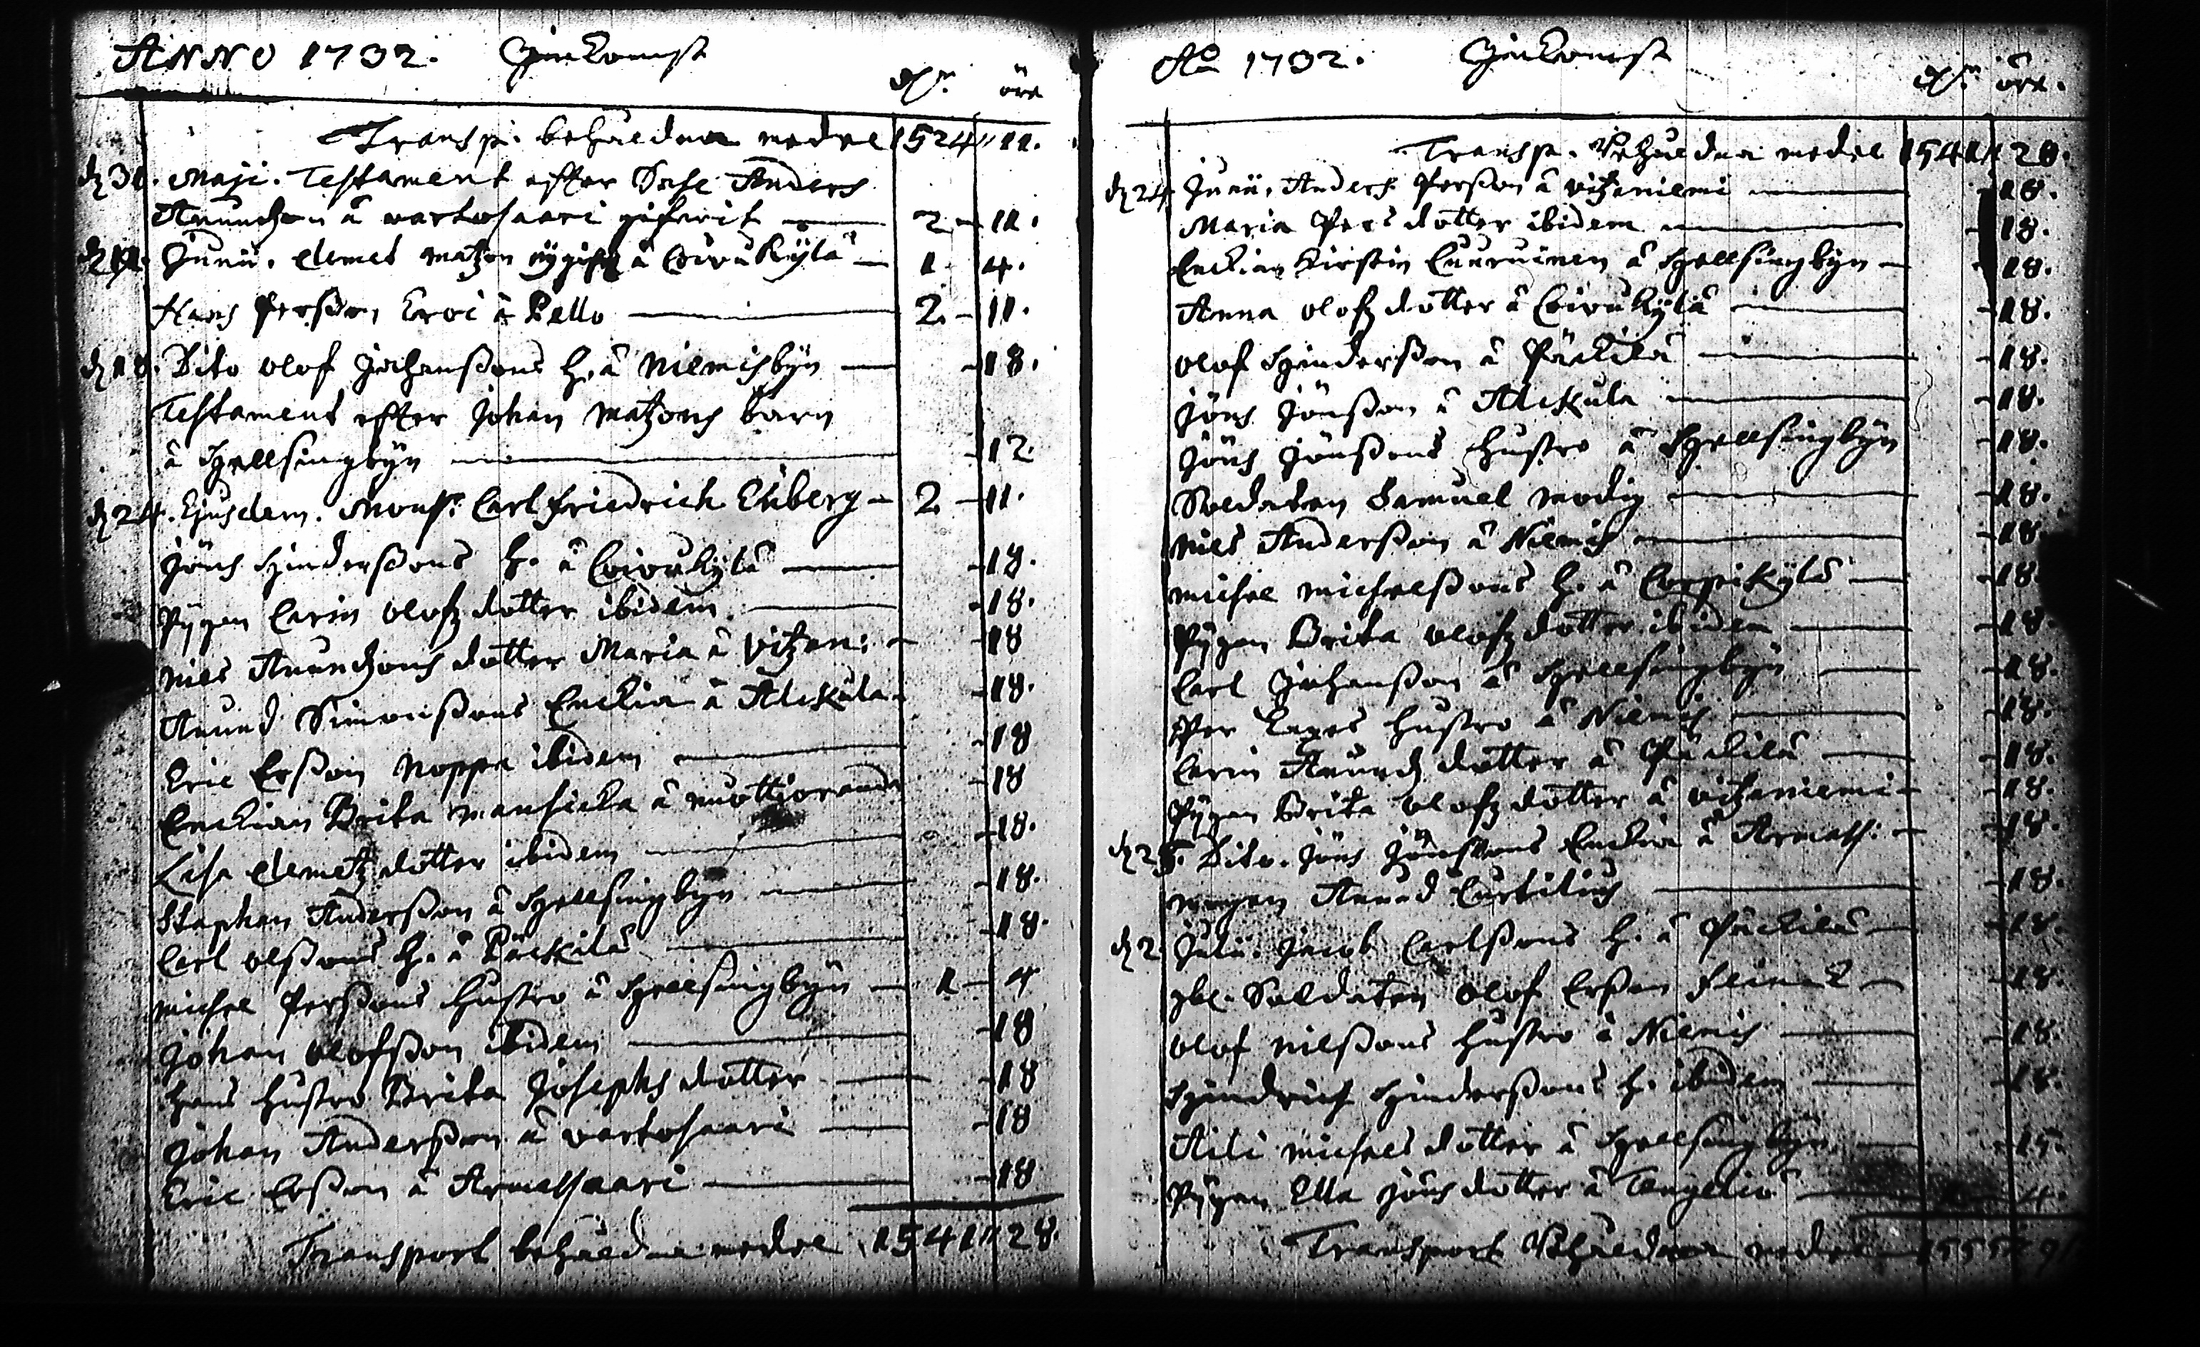 ANNO 1732. Innkomst
d͞r. öre
Transp. behåldna medel 1524 11.
d 31. Maji. Testament effter Sahl Anders
Anundson å wartosaari gifwit — 2 - 11.
d 12. Junii. Clemet Matzon å Coiwukylä — 1 4.
Hans Person, Eroi å Pello — 2 - 11.
d 18. Dito Olof Johanßons h. å Niemisbÿn — - 18.
Testament effter Johan Matzons barn
å Hellsingbÿn — - 12.
d 24. Ejusdem. Mons: Carl Friedrich Ekberg - 2 - 11.
Jöns Hinderßons h. å Coiwukylä — - 18.
Pÿgan Carin Olofz dotter ibidem — - 18.
Nils Anundsons dotter Maria å Vitzan: - - 18
Anund Simonßons Enckia å Alckula - - 18.
Eric Erßon Noppa ibidem — - 18
Enckian Brita Mansicka å - 18
Lisa Clemetz dotter ibidem — - 18.
Staphan Anderßon å Hellsingbÿn — - 18.
Carl Olßons h. å Päckilä — - 18.
Michel Perßons hustro å Hellsingbÿn — 1 - 4
Johan Olofsson ibidem — - 18
Hans hustro Brita Josephs dotter — - 18
Johan Anderßon å wartosaari — - 18
Eric Erßon å Armassaari — - 18
Transport behåldna medel 1541 28.
Ao 1732. Innkomst
d͞r. öre.
Transp. Behåldna medel 1541 28.
d 24 Junii. Anders Perßon å Vitzaniemi — 18.
Maria Pers dotter ibidem — - 18.
Enckian Kirstin å Hellsingbÿn — - 18.
Anna Olofz dotter å Coiwukylä — - 18.
Olof Hinderßon å Päckilä — - 18.
Jöns Jönßon å Alckula — - 18.
Jöns Jönßons hustro å Hellsingbÿn - 18.
Soldaten Samuel Modig — - 18.
Nils Anderßon å Niemis — - 18
Michel Michelßons h. å Corpikylä — - 18.
Pÿgan Brita Olofz dotter ibidem — - 18.
Carl Johanßon å Hellsingbÿn — - 18.
Per hustro å Niemis — - 18.
Carin Anunds dotter å Päckilä — - 18.
Pÿgan Brita Olofz dotter å Vitzaniemi - - 18.
d 25. Dito. Jöns Jönßons Enckia å Armass: - - 18.
Anund Curtilius — - 18.
d 2 Julii. Jacob Carlßons h. å Päckilä — - 18.
gbl. Soldaten Olof Erßon - - 18.
Olof Nilßons hustro å Niemis — - 18.
Hindrich Hinderßons h. ibidem — - 18.
Aili Michels dotter å Hellsingbÿn — - 15.
Pÿgan Ella Jöns dotter å Tengeliö — 4.
Transport Behåldna medel 1555 9